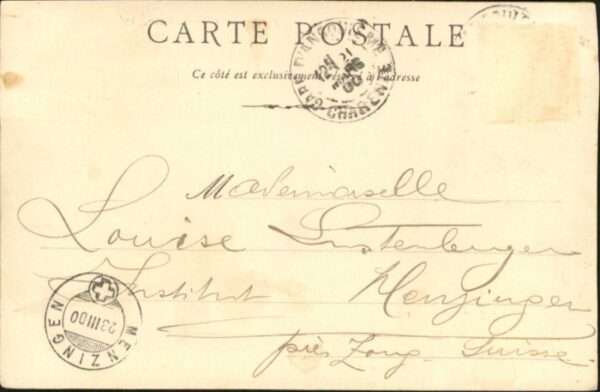 CARTE POSTALE
Ce côté est exclusivement réservé à l'adresse
GARE D'ANGOULÊME
21
MARS
00
CHARENTE
Mademoiselle
Louise Lustenberger
Institut Menzingen
près Zoug Suisse.
MENZINGEN
23 III 00